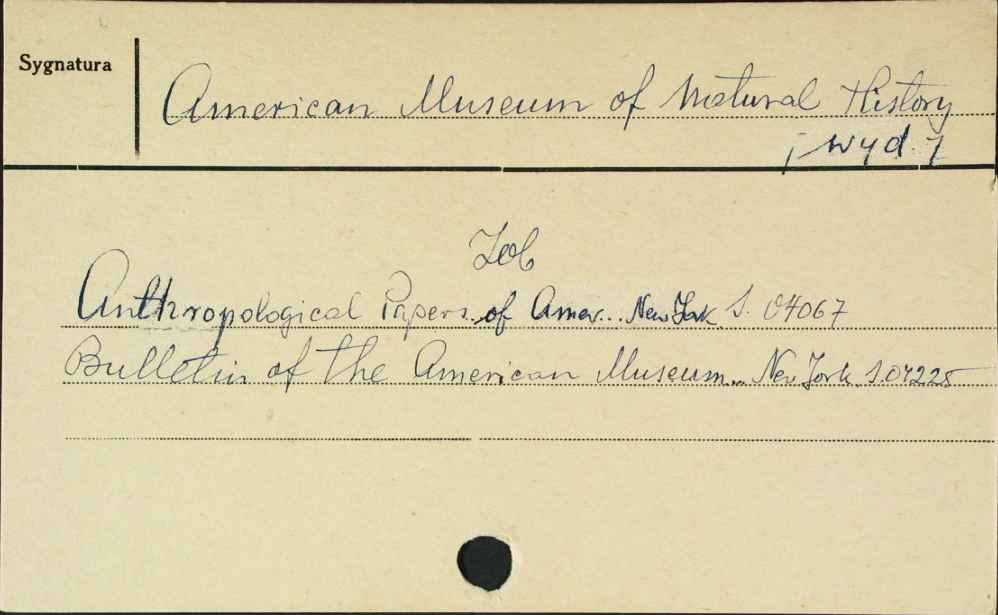 Sygnatura
American Museum of Natural History
[wyd.]
Zob
Anthropological Papers of Amer... New York S. 04067
Bulletin of the American Museum... New York S.04225